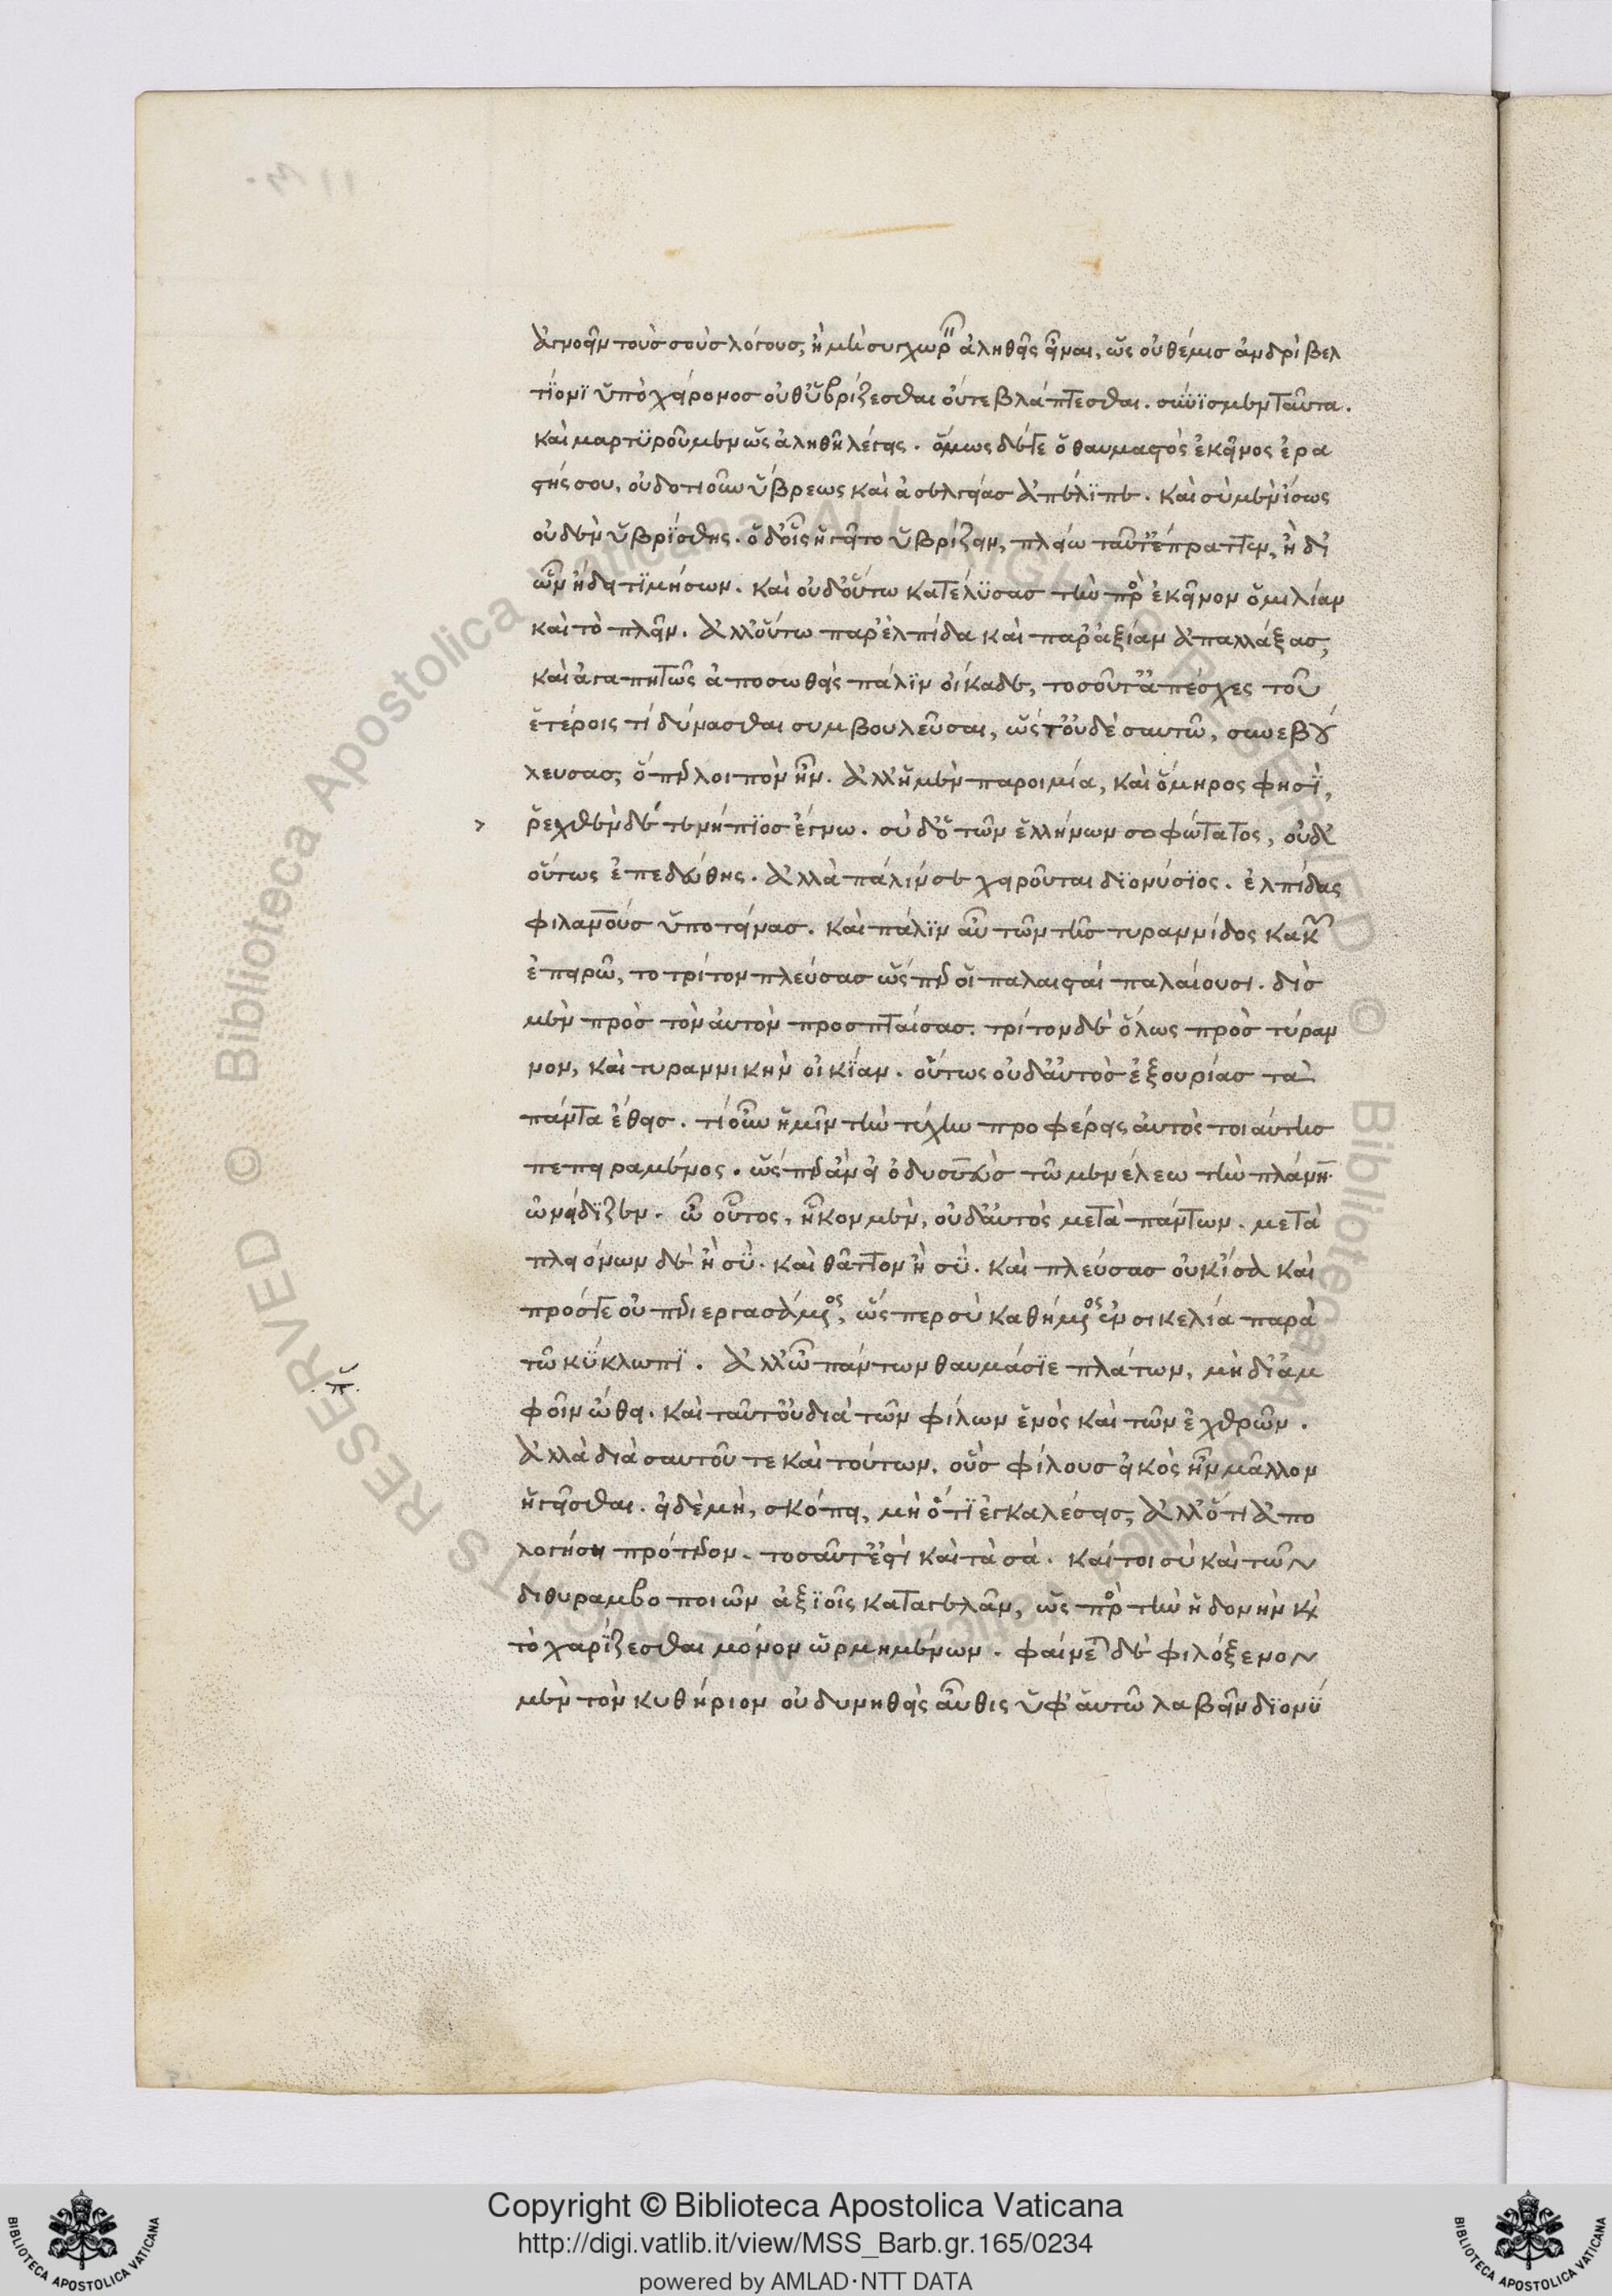 ἀγνοεῖν τοὺσ σοὺσ λόγουσ, ἢ μὴ συγχωρεῖν ἀληθεῖς εἶναι, ὡς οὐ θέμισ ἀνδρὶ βελ
τίονι ὑπὸ χείρονοσ οὔθ' ὑβρίζεσθαι οὔτε βλάπτεσθαι. σύνϊσμεν ταῦτα.
καὶ μαρτυροῦμεν ὡς ἀληθῆ λέγεις. ὅμως δέ γε ὁ θαυμαστὸς ἐκεῖνος ἐρα
στής σου, οὐδοτιοῦν ὕβρεως καὶ ἀσελγείασ ἀπέλιπε. καὶ σὺ μὲν ἴσως
οὐδὲν ὑβρίσθης. ὁ δ' οἷς ἡγεῖτο ὑβρίζειν, πλείω ταῦτ' ἔπραττεν, ἢ δι'
ὧν ᾔδει τιμήσων. καὶ οὐδ' οὕτω κατέλυσασ τὴν πρὸς ἐκεῖνον ὁμιλίαν
καὶ τὸ πλεῖν. ἀλλ' οὕτω παρ' ἐλπίδα καὶ παρ' ἀξίαν ἀπαλλάξασ,
καὶ ἀγαπητῶς ἀποσωθεὶς πάλιν οἴκαδε, τοσοῦτ' ἀπέσχες τοῦ
ἑτέροις τί δύνασθαι συμβουλεῦσαι, ὥστ' οὐδὲ σαυτῶ, συνεβού
λευσασ, ὅπερ λοιπὸν ἦν. ἀλλ' ἡ μὲν παροιμία, καὶ ὅμηρος φησὶ,
ῥεχθὲν δέ τε νήπιοσ ἔγνω. σὺ δ' ὁ τῶν ἑλλήνων σοφώτατος, οὐδ'
οὕτως ἐπεδώθης. ἀλλὰ πάλιν σε χειροῦται διονύσιος. ἐλπίδας
φιλαν̅ους ὑποτείνασ. καὶ πάλιν αὖ τῶν τῆσ τυραννίδος κακῶν
ἐπειρῶ, το τρίτον πλεύσασ ὥσπερ οἱ παλαισταὶ παλαίουσι. δὶσ
μὲν πρὸσ τὸν αὐτὸν προσπταίσασ. τρίτον δὲ ὅλως πρὸσ τύραν
νον, καὶ τυραννικὴν οἰκίαν. οὕτως οὐδ' αὐτὸσ ἐξουρίασ τὰ
πάντα ἔθεισ. τί οὖν ἡμῖν τὴν τύχην προφέρεις αὐτὸς τοιαύτησ
πεπειραμένος. ὥσπερ ἂν εἰ ὀδυσσεὺσ τῶ μενέλεω τὴν πλάνην
ὠνείδιζεν. ὦ οὗτος, ἧκον μὲν, οὐδ' αὐτὸς μετὰ πάντων. μετὰ
πλειόνων δὲ ἢ σὺ. καὶ θᾶττον ἢ σὺ. καὶ πλεύσασ οὐκ ἴσα καὶ
πρόσγε οὐ περιεργασάμενος, ὥσπερ σὺ καθήμενος ἐν σικελία παρὰ
τῶ κύκλωπι. ἀλλ' ὦ πάντων θαυμάσιε πλάτων, μὴ δι' ἀμ
φοῖν ὤθει. καὶ ταῦτ' οὐ διὰ τῶν φίλων ἑνὸς καὶ τῶν ἐχθρῶν.
ἀλλὰ διὰ σαυτοῦ τε καὶ τούτων, οὓσ φίλουσ εἰκὸς ἦν μᾶλλον
ἡγεῖσθαι. εἰ δὲ μὴ, σκόπει, μὴ ὅτι ἐγκαλέσεισ, ἀλλ' ὅτι ἀπο
λογήση πρότερον. τοσαῦτ' ἐστὶ καὶ τὰ σά. καίτοι σὺ καὶ τῶν
διθυραμβοποιῶν ἀξιοῖς καταγελᾶν, ὡς πρὸς τὴν ἡδονὴν καὶ
τὸ χαρίζεσθαι μόνον ὡρμημένων. φαίνεται δὲ φιλόξενον
μὲν τὸν κυθήριον οὐ δυνηθεὶς αὖθις ὑφ' αὑτῶ λαβεῖν διονύ
Copyright © Biblioteca Apostolica Vaticana
http://digi.vatlib.it/view/MSS_Barb.gr.165/0234
powered by AMLAD·NTT DATA